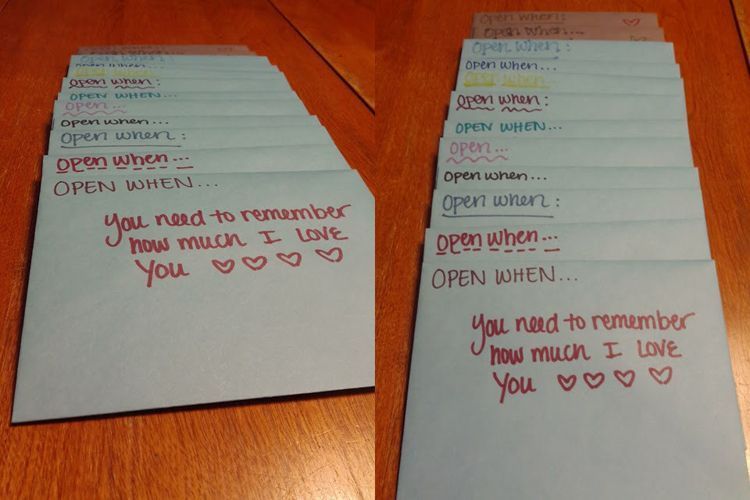 Open when:
Open when...
Open when:
OPEN WHEN...
Open...
Open when...
Open when:
Open when...
OPEN WHEN...
You need to remember
how much I LOVE
You ♡ ♡ ♡ ♡
Open when:
Open when...
Open when:
Open when...
Open when...
Open when:
OPEN WHEN...
Open...
Open when...
Open when:
Open when...
OPEN WHEN...
You need to remember
how much I LOVE
You ♡ ♡ ♡ ♡